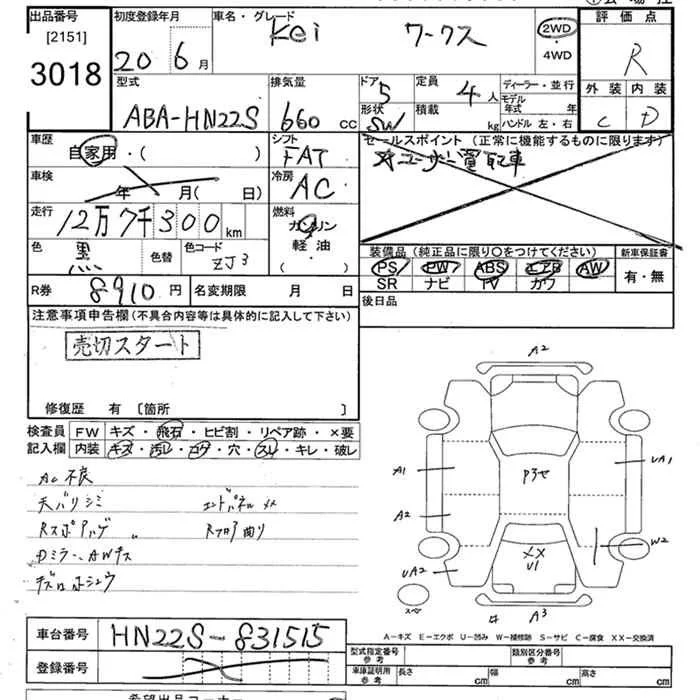 出品番号
[2151]
3018
初度登録年月
20 6 月
車名・グレード
Kei ワークス
2WD
・
4WD
評価点
R
外装 内装
C D
型式
ABA-HN22S
排気量
660 CC
ドア 5
形状 SW
定員
4 人
積載
kg
ディーラー・並行
モデル
年式 年
ハンドル 左・右
車歴
自家用・( )
シフト
FAT
セールスポイント (正常に機能するものに限ります)
ユーザー買取車
車検
年 月( 日)
冷房
AC
走行
12万7千300 km
燃料
ガソリン
軽油
・( )
色
黒
色替
色コード
ZJ3
装備品 (純正品に限り○をつけてください)
PS PW ABS エアB AW
SR ナビ TV カワ
新車保証書
有・無
R券 8910 円
名変期限 月 日
後日品
注意事項申告欄 (不具合内容等は具体的に記入して下さい)
売切スタート
修復歴 有 [箇所 ]
検査員
記入欄
FW キズ・飛石・ヒビ割・リペア跡・×要
内装 キズ・汚レ・コゲ・穴・スレ・キレ・破レ
AC不良
天バリシミ エンドパネル メメ
Rスポアハゲ
Dミラー、AWキズ
キズロホシュウ
A2
A1
A2
UA2
P3セ
UA1
W2
XX
U1
A3
スペ
A－キズ E－エクボ U－凹み W－補修跡 S－サビ C－腐食 XX－交換済
車台番号 HN22S-831515
登録番号
型式指定番号
参考
類別区分番号
参考
車庫証明用
参考
長さ cm
幅 cm
高さ cm